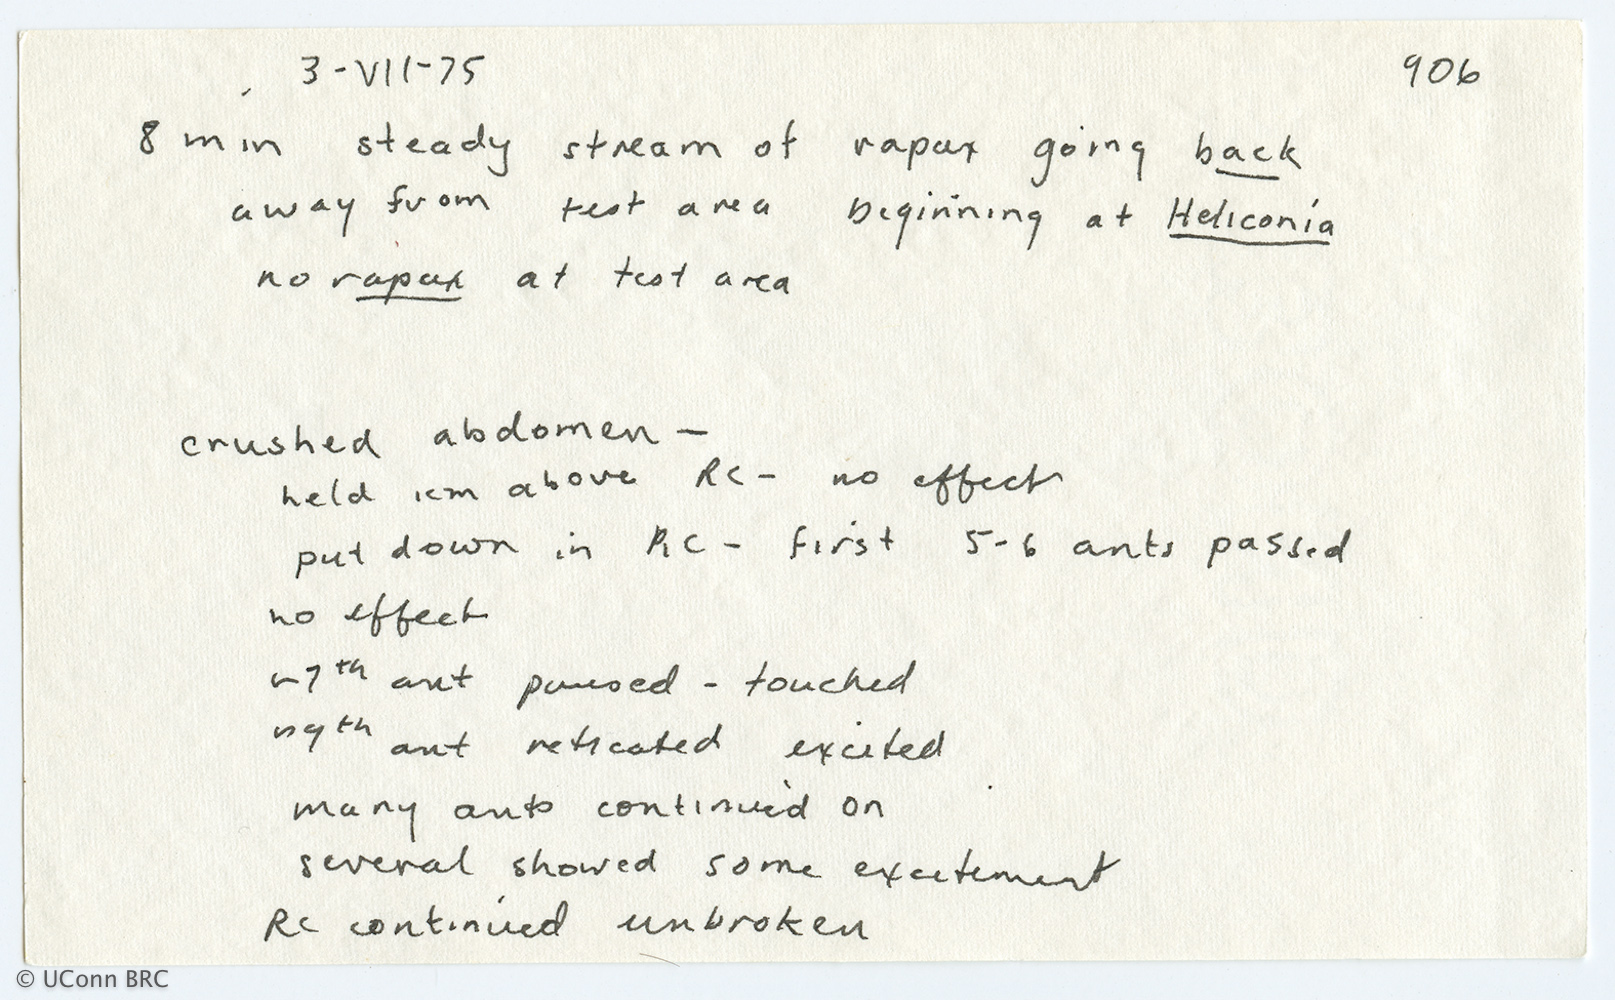 3-VII-75 906
8 min steady stream of rapax going back
away from test area beginning at Heliconia
no rapax at test area
crushed abdomen –
held 1cm above RC – no effect
put down in RC – first 5-6 ants passed
no effect
~7th ant paused – touched
~9th ant reticated excited
many ants continued on
several showed some excitement
RC continued unbroken
© UConn BRC